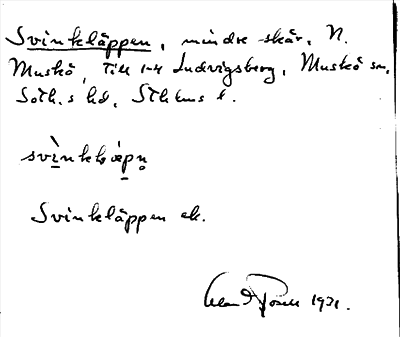 Svinkläppen, mindre skär, N.
Muskö, till 1-4 Ludvigsberg, Muskö sn,
Soth.s hd, Sthlms l.
svinkklæpn̥
Svinkläppen ek.
1931.